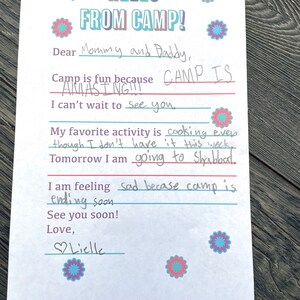 FROM CAMP!
Dear Mommy and Daddy,
Camp is fun because CAMP IS
AMASING!!!
I can't wait to see you.
My favorite activity is cooking even
though I don't have it this week.
Tomorrow I am going to Shabbat.
I am feeling sad becase camp is
ending soon
See you soon!
Love,
♡Lielle